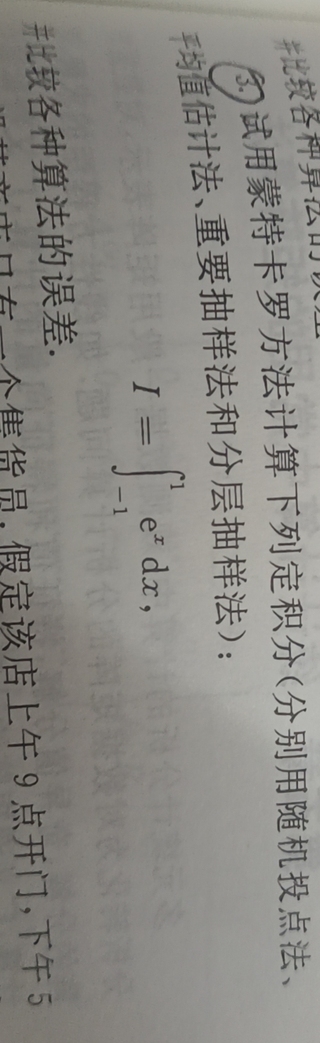 并比较各种算法的误差
3. 试用蒙特卡罗方法计算下列定积分(分别用随机投点法、
平均值估计法、重要抽样法和分层抽样法):
I = ∫_{-1}^{1} e^x dx,
并比较各种算法的误差.
只有一个售货员.假定该店上午9点开门,下午5